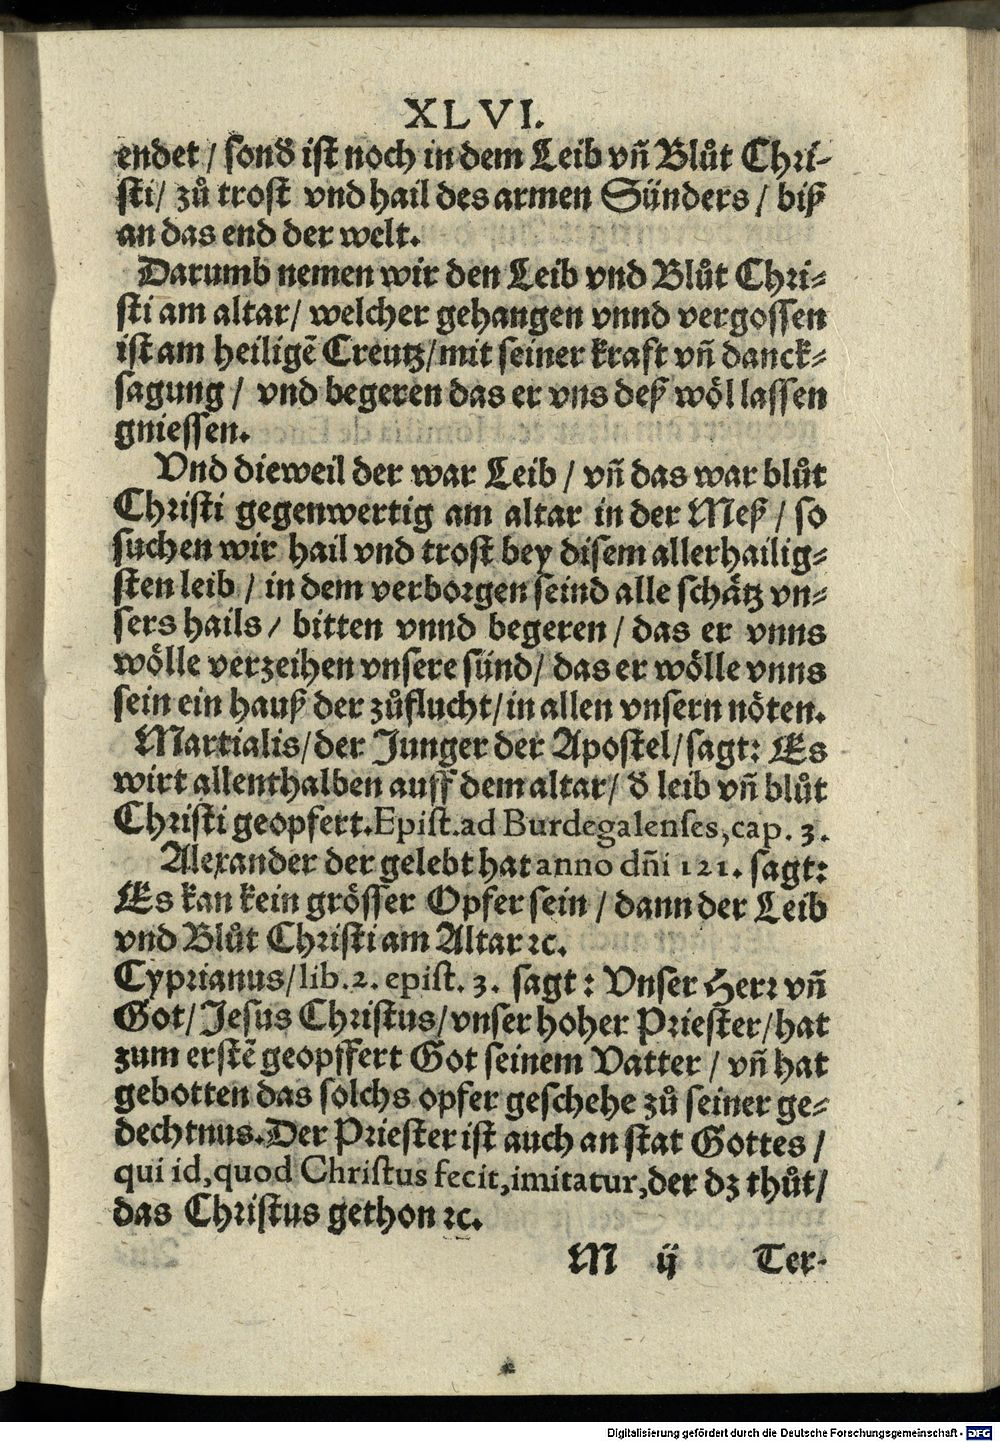 XLVI.
endet / sond̕ ist noch in dem Leib vñ Blůt Chri-
sti / zů trost vnd hail des armen Sünders / biß
an das end der welt.
Darumb nemen wir den Leib vnd Blůt Chri-
sti am altar / welcher gehangen vnnd vergossen
ist am heiligẽ Creutz / mit seiner kraft vñ danck-
sagung / vnd begeren das er vns deß wöl lassen
gniessen.
Vnd dieweil der war Leib / vñ das war blůt
Christi gegenwertig am altar in der Meß / so
suchen wir hail vnd trost bey disem allerhailig-
sten leib / in dem verborgen seind alle schätz vn-
sers hails / bitten vnnd begeren / das er vnns
wölle verzeihen vnsere sünd / das er wölle vnns
sein ein hauß der zůflucht / in allen vnsern nöten.
Martialis / der Junger der Apostel / sagt: Es
wirt allenthalben auff dem altar / d̕ leib vñ blůt
Christi geopfert. Epist. ad Burdegalenses, cap. 3.
Alexander der gelebt hat anno dñi 121. sagt:
Es kan kein grösser Opfer sein / dann der Leib
vnd Blůt Christi am Altar ꝛc.
Cyprianus / lib. 2. epist. 3. sagt: Vnser Herr vñ
Got / Jesus Christus / vnser hoher Priester / hat
zum erstẽ geopffert Got seinem Vatter / vñ hat
gebotten das solchs opfer geschehe zů seiner ge-
dechtnus. Der Priester ist auch an stat Gottes /
qui id, quod Christus fecit, imitatur, der dz thůt /
das Christus gethon ꝛc.
M ij Ter-
Digitalisierung gefördert durch die Deutsche Forschungsgemeinschaft - DFG